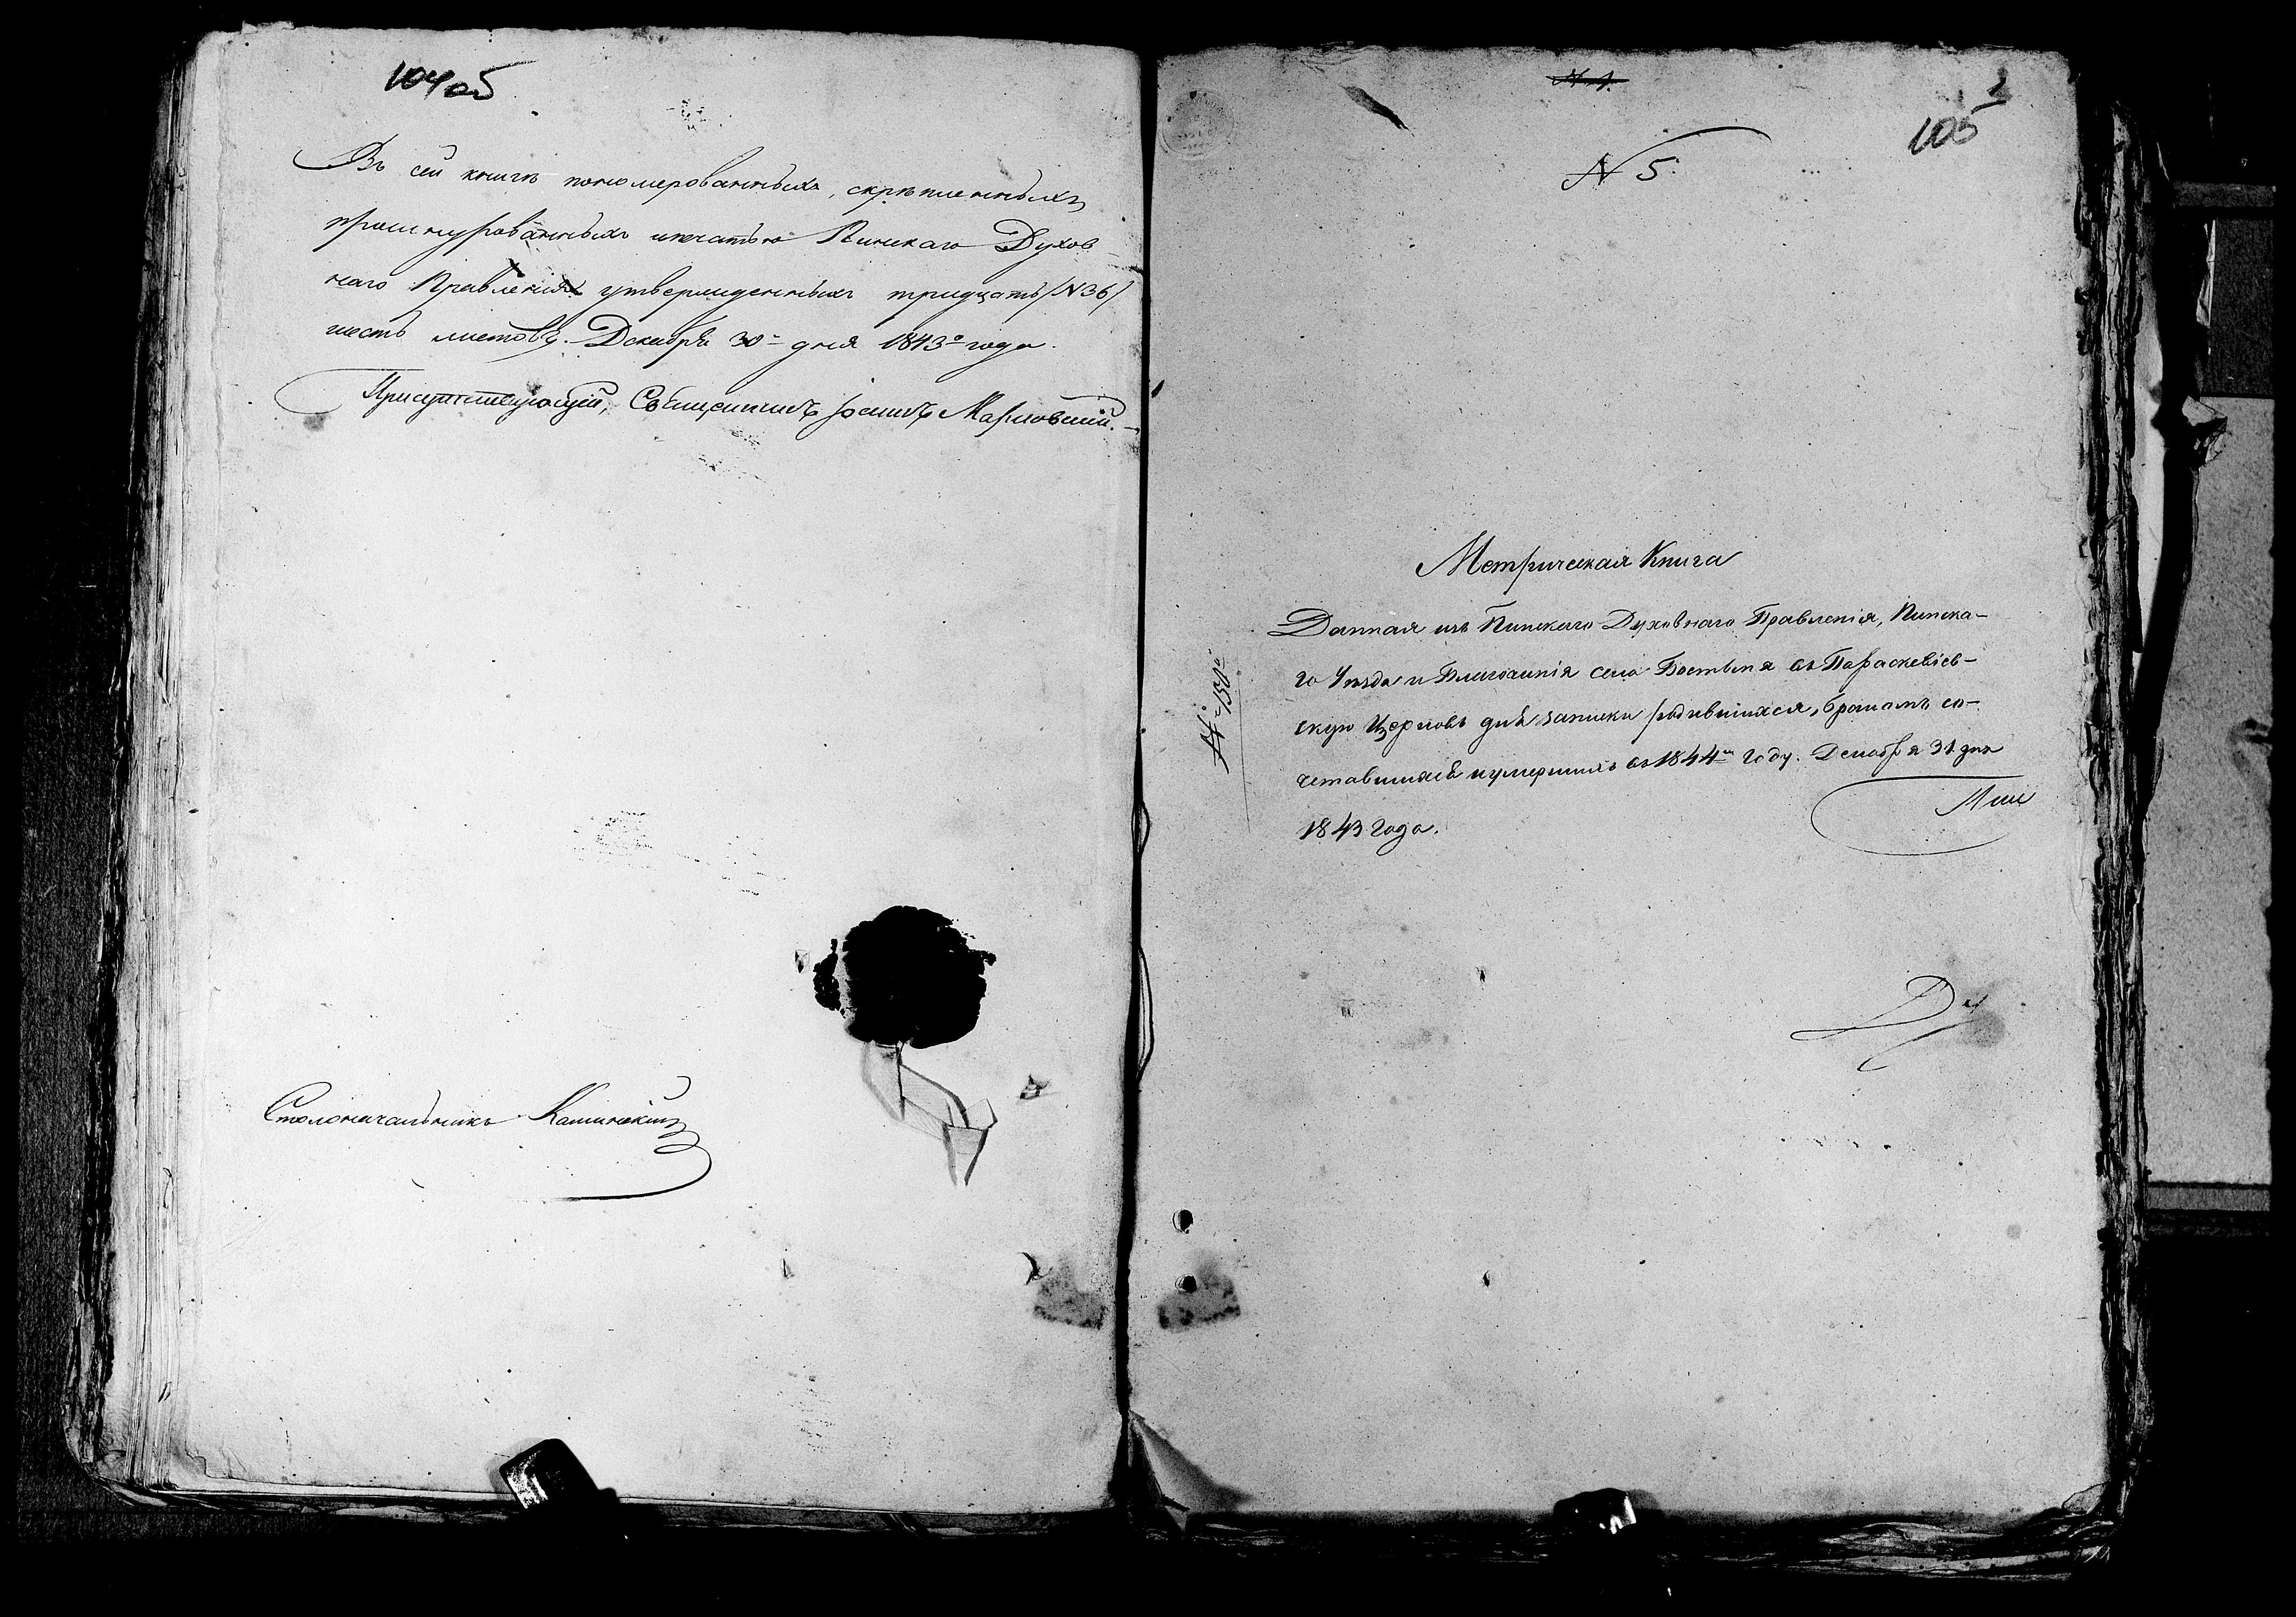 104об
Въ сей книгѣ пономерованныхъ, скрѣпленныхъ
прошнурованныхъ и печатью Пинскаго Духов-
наго Правленія утвержденныхъ тридцать /N 36/
шесть листовъ. Декабря 30 дня 1843го года.
Присутствующій, Священникъ Іоаннъ Марковскій.
Столоначальникъ Каминскій
N 1.
1
105
N 5.
Метрическая Книга
Данная изъ Пинскаго Духовнаго Правленія, Пинска-
го Уѣзда и Благочинія села Бостыня въ Параскевіев-
скую Церковь для записки родившихся, бракомъ со-
четавшихся и умершихъ въ 1844м году. Декабря 31 дня
1843 года.
N 150